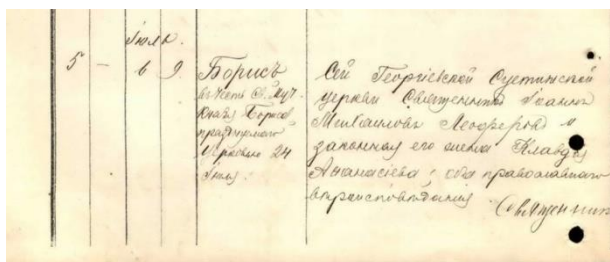 Июль.
5 — 6 9
Борисъ
въ честь Св. Муч.
Князя Бориса
празднуемого
Церковью 24
Июля.
Сей Георгіевской Суетинской
церкви Священникъ Іоаннъ
Михаиловъ и
законная его жена Клавдія
Аѳанасіева, оба православнаго
вѣроисповѣданія.
Священник